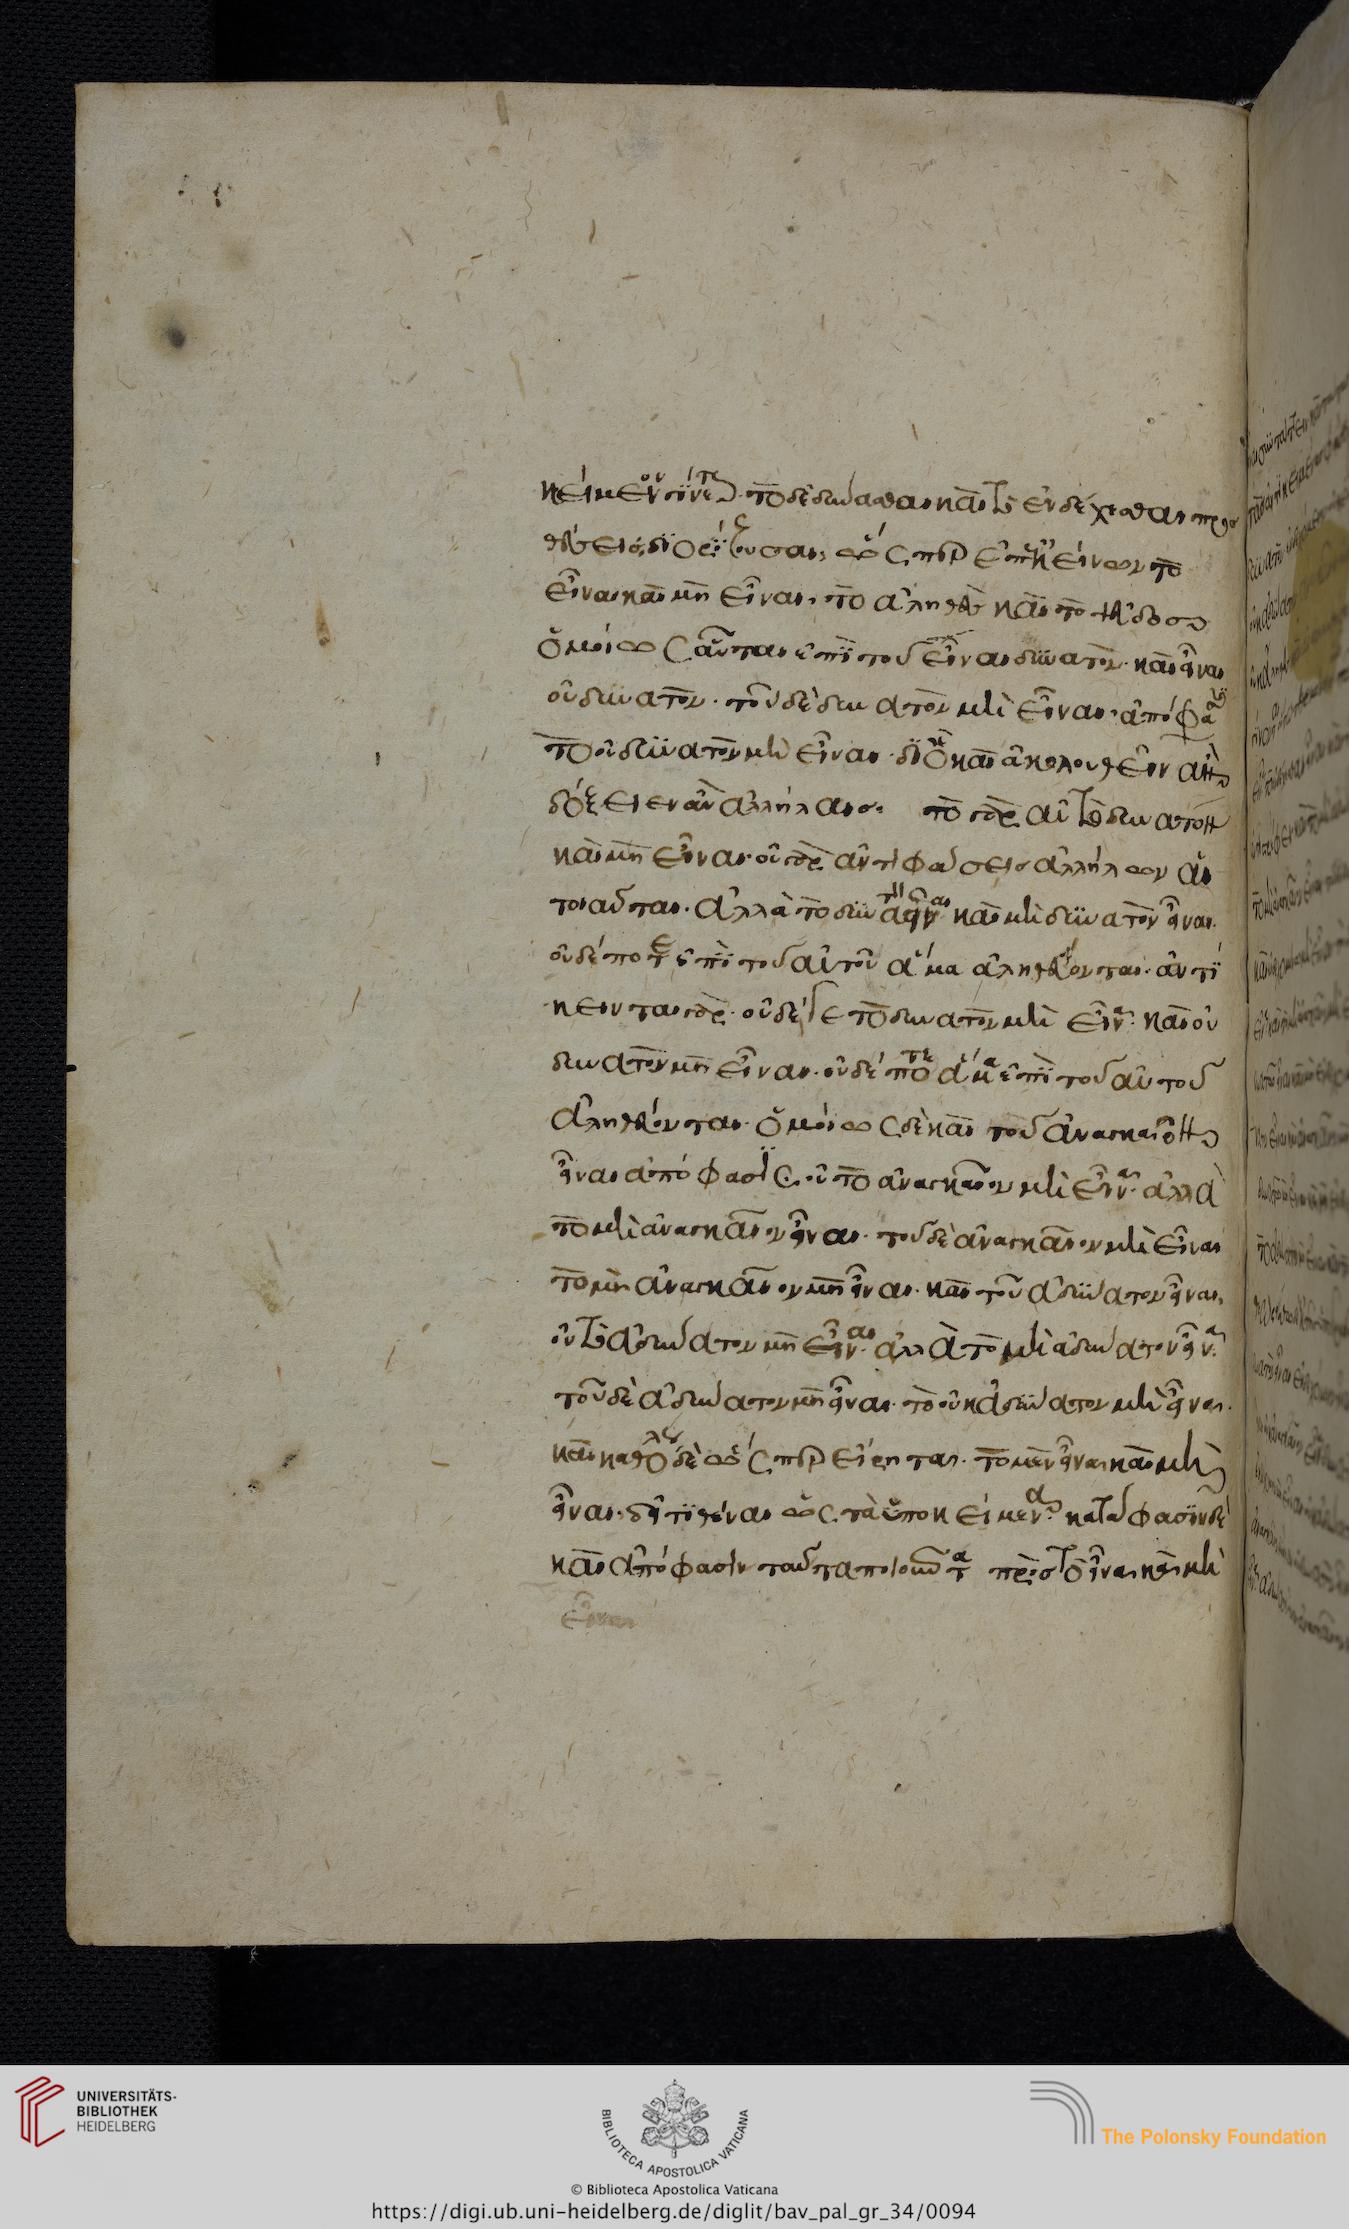 κείμενον γίνεται. τὸ δὲ δύνασθαι καὶ τὸ ἐνδέχεσθαι προσ
θέσεις διορίζουσαι, ὥσπερ ἐπ' ἐκείνων τὸ
εἶναι καὶ μὴ εἶναι, τὸ ἀληθὲς καὶ τὸ ψεῦδος
ὁμοίως αὗται ἐπὶ τοῦ εἶναι δυνατόν. καὶ εἶναι
οὐ δυνατόν. τοῦ δὲ δυνατὸν μὴ εἶναι. ἀπόφασις
τὸ οὐ δυνατὸν μὴ εἶναι. διὸ καὶ ἀκολουθεῖν αὗται
δόξειεν ἂν ἀλλήλαις. τὸ γὰρ αὐτὸ δυνατὸν
καὶ μὴ εἶναι. οὐ γὰρ ἀντιφάσεις ἀλλήλων αἱ
τοιαῦται. ἀλλὰ τὸ δυνατὸν εἶναι καὶ μὴ δυνατὸν εἶναι.
οὐδέποτε ἐπὶ τοῦ αὐτοῦ ἅμα ἀληθεύονται. ἀντί
κεινται γάρ. οὐδέ γε τὸ δυνατὸν μὴ εἶναι. καὶ οὐ
δυνατὸν μὴ εἶναι. οὐδέποτε ἅμα ἐπὶ τοῦ αὐτοῦ
ἀληθεύονται. ὁμοίως δὲ καὶ τοῦ ἀναγκαῖον
εἶναι ἀπόφασις. οὐ τὸ ἀναγκαῖον μὴ εἶναι. ἀλλὰ
τὸ μὴ ἀναγκαῖον εἶναι. τοῦ δὲ ἀναγκαῖον μὴ εἶναι
τὸ μὴ ἀναγκαῖον μὴ εἶναι. καὶ τοῦ ἀδύνατον εἶναι,
οὐ τὸ ἀδύνατον μὴ εἶναι. ἀλλὰ τὸ μὴ ἀδύνατον εἶναι.
τοῦ δὲ ἀδύνατον μὴ εἶναι. τὸ οὐκ ἀδύνατον μὴ εἶναι.
καὶ καθόλου δὲ ὥσπερ εἴρηται. τὸ μὲν εἶναι καὶ μὴ
εἶναι. δεῖ τιθέναι ὡς τὰ ὑποκείμενα. κατάφασιν δὲ
καὶ ἀπόφασιν ταῦτα ποιοῦντα πρὸς τὸ εἶναι καὶ μὴ
εἶναι
UNIVERSITÄTS-
BIBLIOTHEK
HEIDELBERG
BIBLIOTECA APOSTOLICA VATICANA
The Polonsky Foundation
© Biblioteca Apostolica Vaticana
https://digi.ub.uni-heidelberg.de/diglit/bav_pal_gr_34/0094